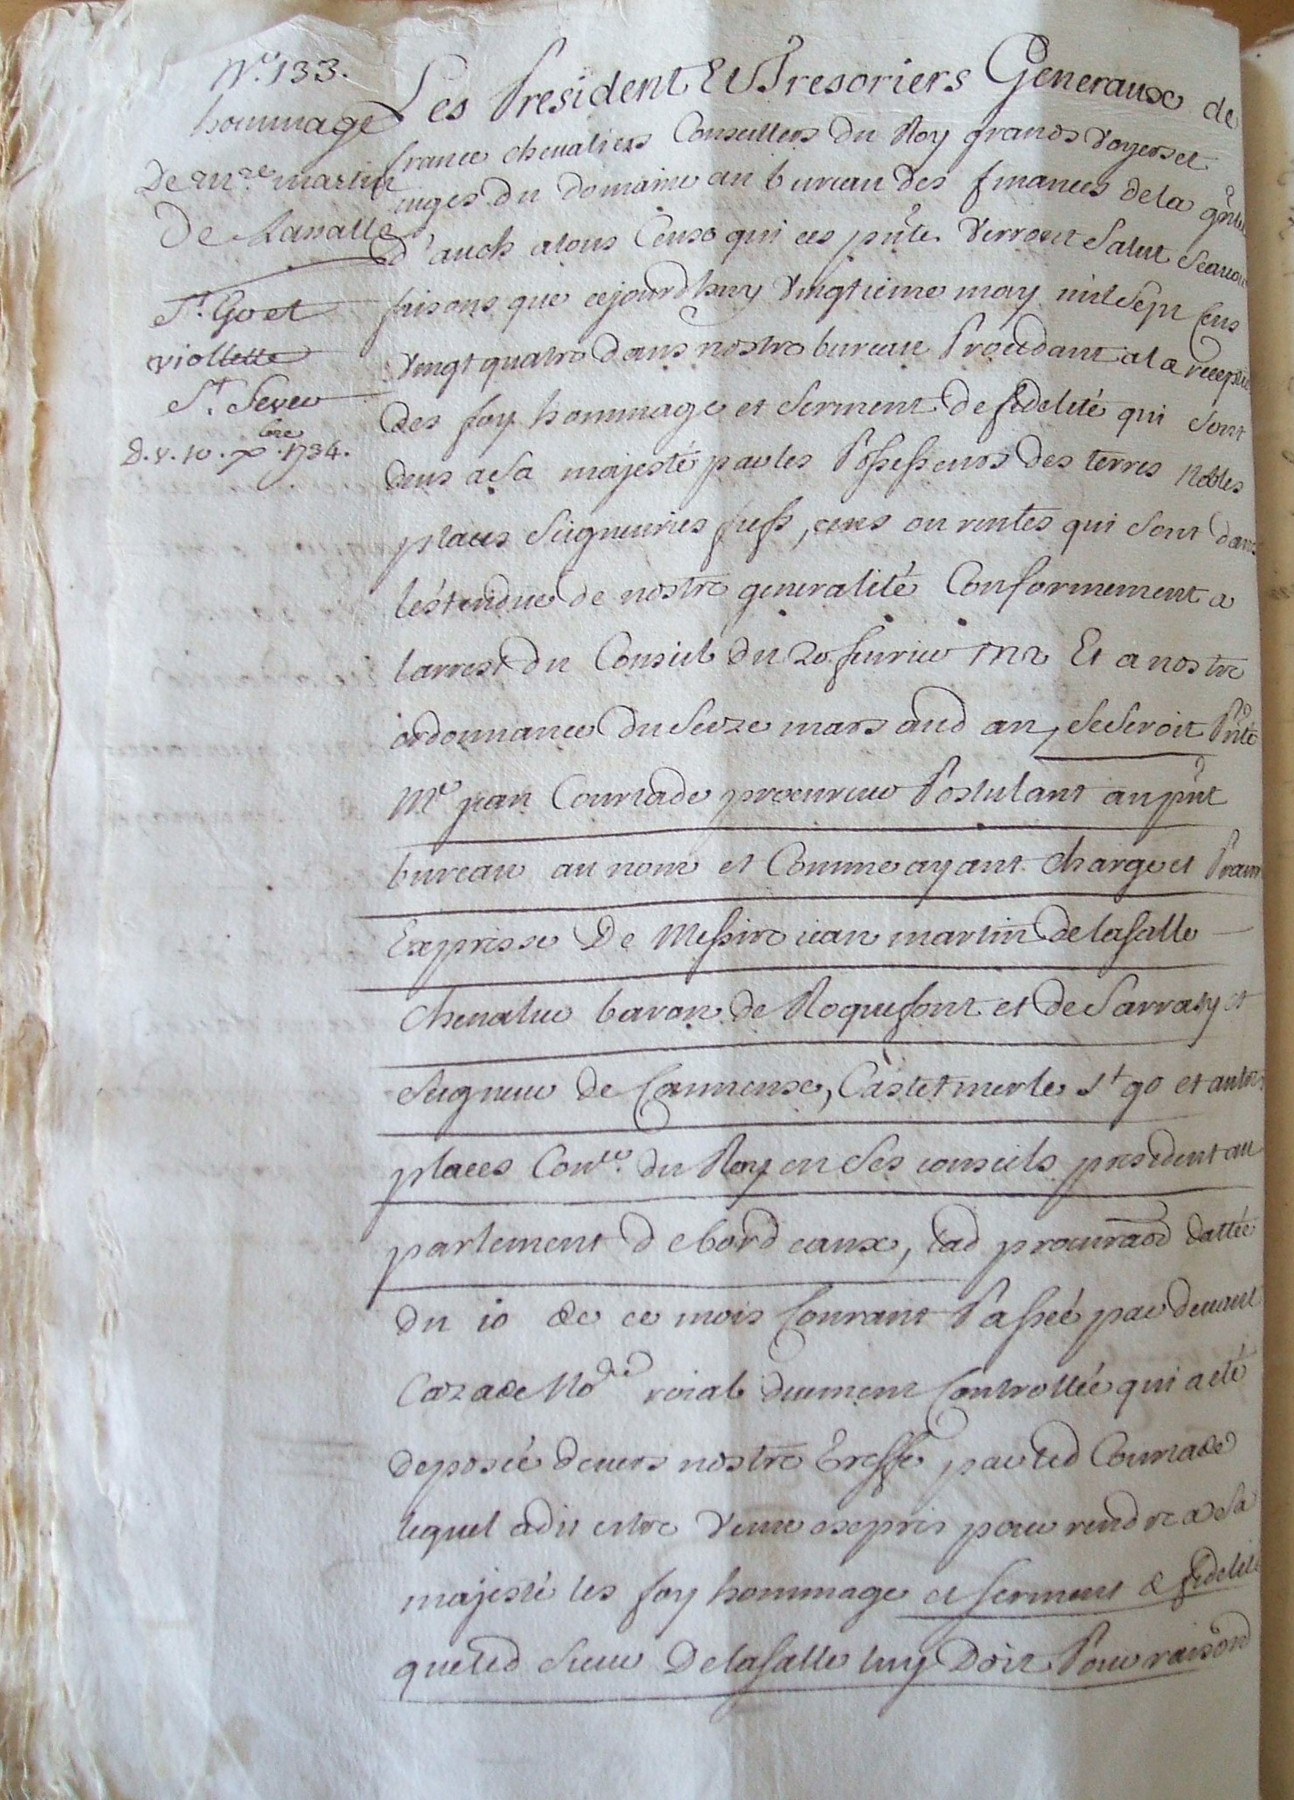 N.º 133.
hommage
De mre martin
De Lasalle
St. Goet
viollette
St. Sever
D. v. 10. xbre. 1734.
Les President Et Tresoriers Generaux de
france chevaliers Conseillers du Roy grands Voyers et
iuges du domaine au bureau des finances de la gñlité
d'auch atous Ceux qui ces pñtes Verront Salut Scavoir
faisons que cejourdhuy Vingtieme may mil Sept Cens
Vingt quatre dans nostre bureau Procedant a la reception
des foy hommage et Serment de fidelité qui Sont
deus a Sa majesté par les Possesseurs des terres Nobles
places Seigneuries fiefs, cens ou rentes qui Sont dans
lestendue de nostre generalité Conformement a
larrest du Conseil du 20. feurier 1722 Et a nostre
ordonnance du Seize mars aud an, Se Seroit Pñté
Me jean Courtade procureur Postulant au pñt
bureau au nom et Comme ayant charge et Procuraõn
Expresse De Messire iean martin de lasalle
chevalier baron de Roquefort et de Sarraxy et
Seigneur de Cannenx, Castetmerle St go et autres
places Conler. du Roy en Ses conseils president au
parlement de bordeaux, lad procuraõn dattée
du 10 de ce mois Courant Passée par devant
Cazade Nore roial deument Controllée qui a eté
deposée devers nostre Greffe par led Courtade
lequel a dit estre Venu expres pour rendre a Sa
majesté les foy hommage et Serment de fidelité
que led Sieur De lasalle luy Doit Pour raison d